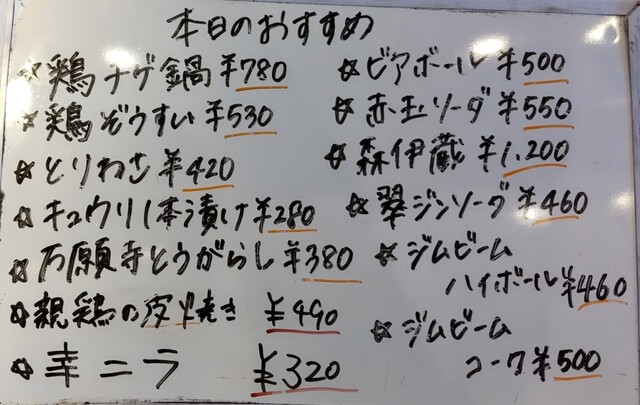 本日のおすすめ
☆鶏チゲ鍋 ¥780
☆鶏ぞうすい ¥530
☆とりわさ ¥420
☆キュウリ1本漬け ¥280
☆万願寺とうがらし ¥380
☆親鶏の皮焼き ¥490
☆幸ニラ ¥320
☆ビアボール ¥500
☆赤玉ソーダ ¥550
☆森伊蔵 ¥1,200
☆翠ジンソーダ ¥460
☆ジムビーム
ハイボール ¥460
☆ジムビーム
コーク ¥500